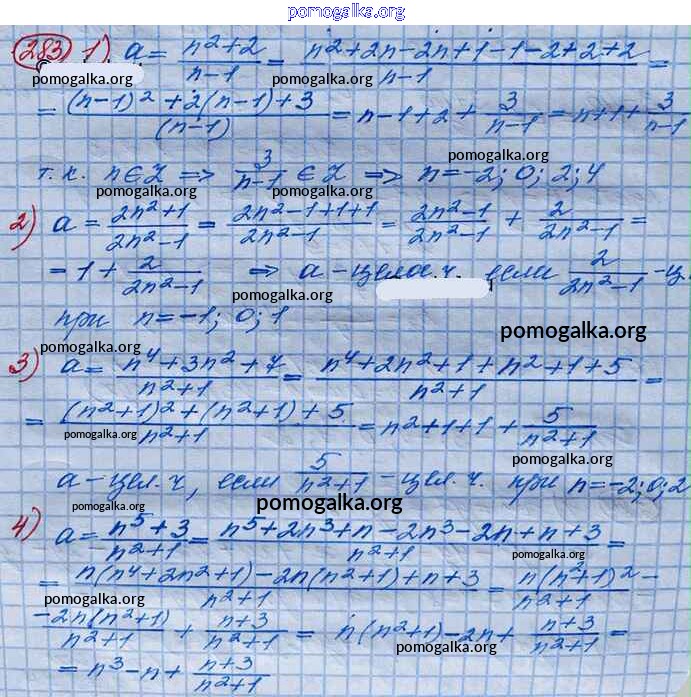 pomogalka.org
283 1) a = (n²+2)/(n-1) = (n²+2n-2n+1-1-2+2+2)/(n-1) =
pomogalka.org pomogalka.org
= ((n-1)²+2(n-1)+3)/(n-1) = n-1+2+3/(n-1) = n+1+3/(n-1)
pomogalka.org
т.к. n∈Z ⇒ 3/(n-1) ∈ Z ⇒ n=-2; 0; 2; 4
pomogalka.org
2) a = (2n²+1)/(2n²-1) = (2n²-1+1+1)/(2n²-1) = (2n²-1)/(2n²-1) + 2/(2n²-1) =
= 1+2/(2n²-1) ⇒ a-целое ч. если 2/(2n²-1) -ц.
pomogalka.org
при n=-1; 0; 1
pomogalka.org
pomogalka.org
3) a = (n⁴+3n²+7)/(n²+1) = (n⁴+2n²+1+n²+1+5)/(n²+1) =
= ((n²+1)²+(n²+1)+5)/(n²+1) = n²+1+1+5/(n²+1)
pomogalka.org pomogalka.org
a-цел.ч, если 5/(n²+1) -цел.ч. при n=-2;0;2
pomogalka.org pomogalka.org
4) a = (n⁵+3)/(n²+1) = (n⁵+2n³+n-2n³-2n+n+3)/(n²+1) =
pomogalka.org pomogalka.org
= (n(n⁴+2n²+1)-2n(n²+1)+n+3)/(n²+1) = n(n²+1)²/(n²+1) -
pomogalka.org pomogalka.org
-2n(n²+1)/(n²+1) + (n+3)/(n²+1) = n(n²+1)-2n+(n+3)/(n²+1) =
pomogalka.org pomogalka.org
= n³-n+(n+3)/(n²+1)